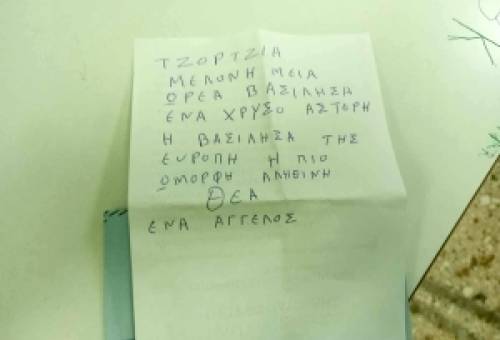 ΤΖΟΡΤΖΙΑ
ΜΕΛΟΝΗ ΜΕΙΑ
ΩΡΕΑ ΒΑΣΙΛΗΣΑ
ΕΝΑ ΧΡΥΣΟ ΑΣΤΕΡΗ
Η ΒΑΣΙΛΗΣΑ ΤΗΣ
ΕΥΡΟΠΗ Η ΠΙΟ
ΩΜΟΡΦΗ ΑΛΗΘΙΝΗ
ΘΕΑ
ΕΝΑ ΑΓΓΕΛΟΣ